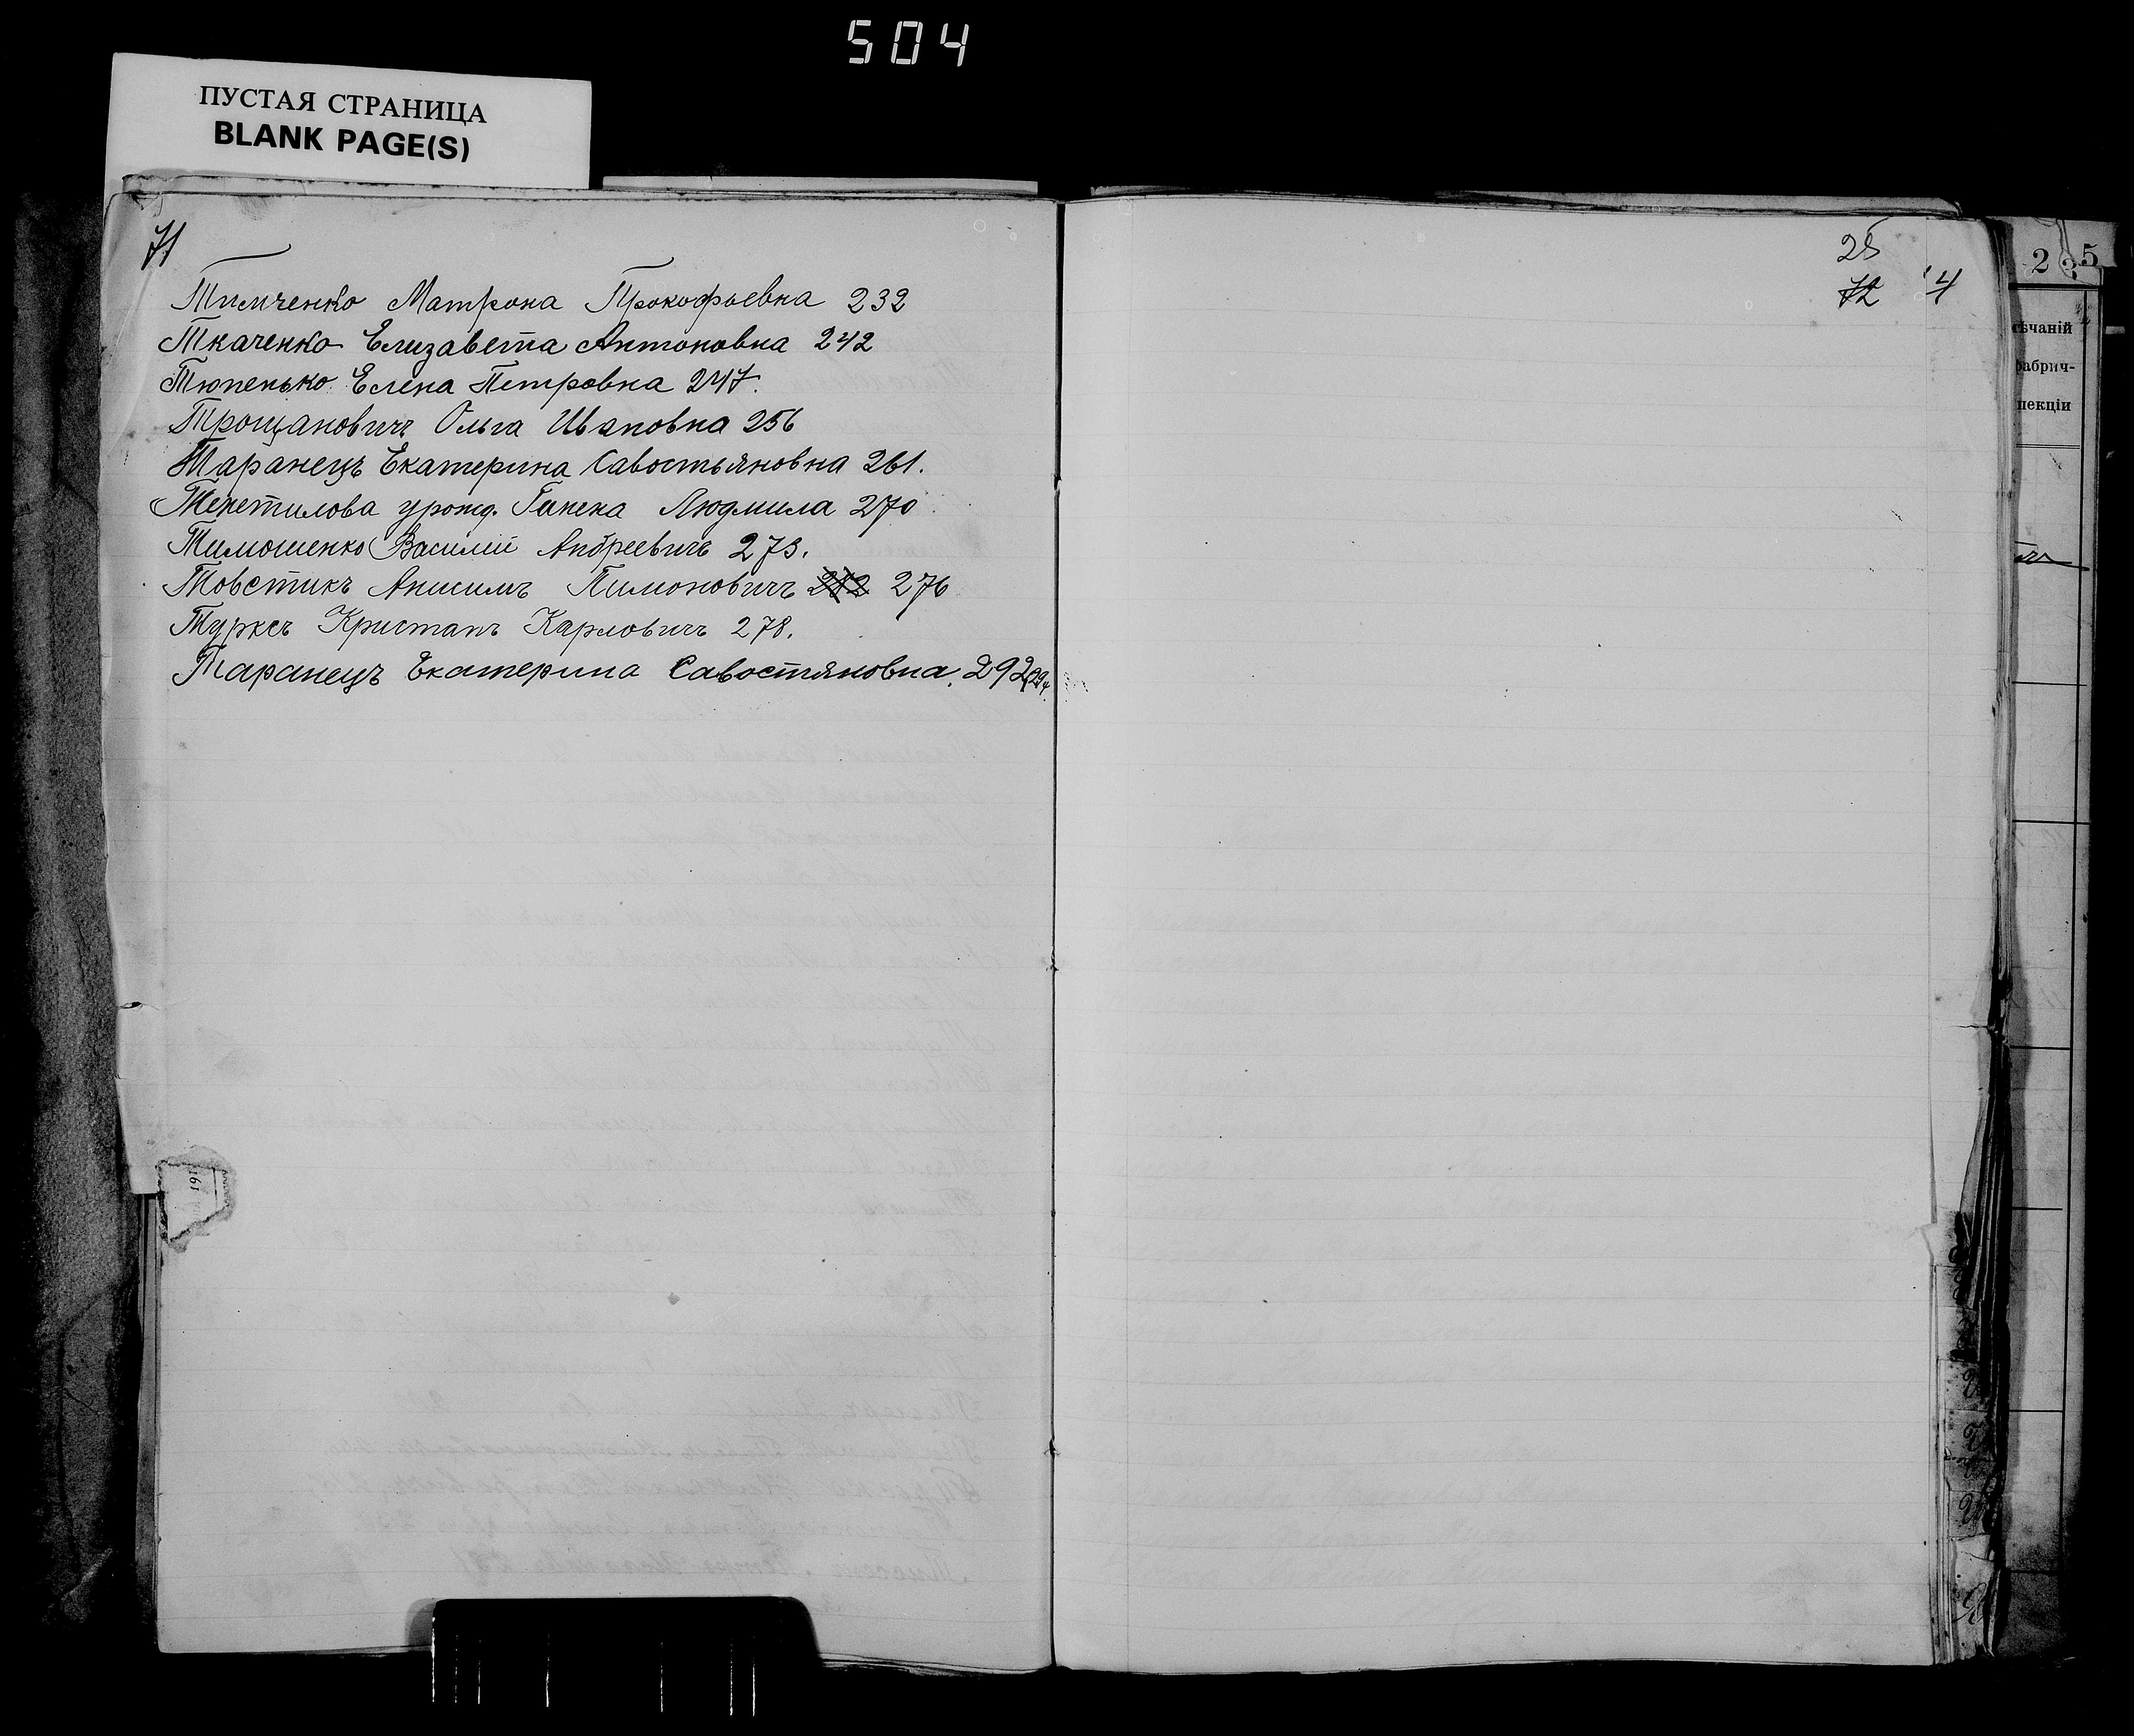 504
ПУСТАЯ СТРАНИЦА
BLANK PAGE(S)
71
Тимченко Матрона Прокофьевна 232
Ткаченко Елизавета Антоновна 242
Тюпенько Елена Петровна 247.
Трощановичъ Ольга Ивановна 256
Таранецъ Екатерина Савостьяновна 261.
Тенетилова урожд. Ганека Людмила 270
Тимошенко Василий Андреевичъ 273.
Товстикъ Анисимъ Пимоновичъ 276
Турксъ Кристапъ Карловичъ 278.
Таранецъ Екатерина Савостяновна. 292, 294.
25
72
4
2
5
ѣчаній
фабрич-
пекціи
191